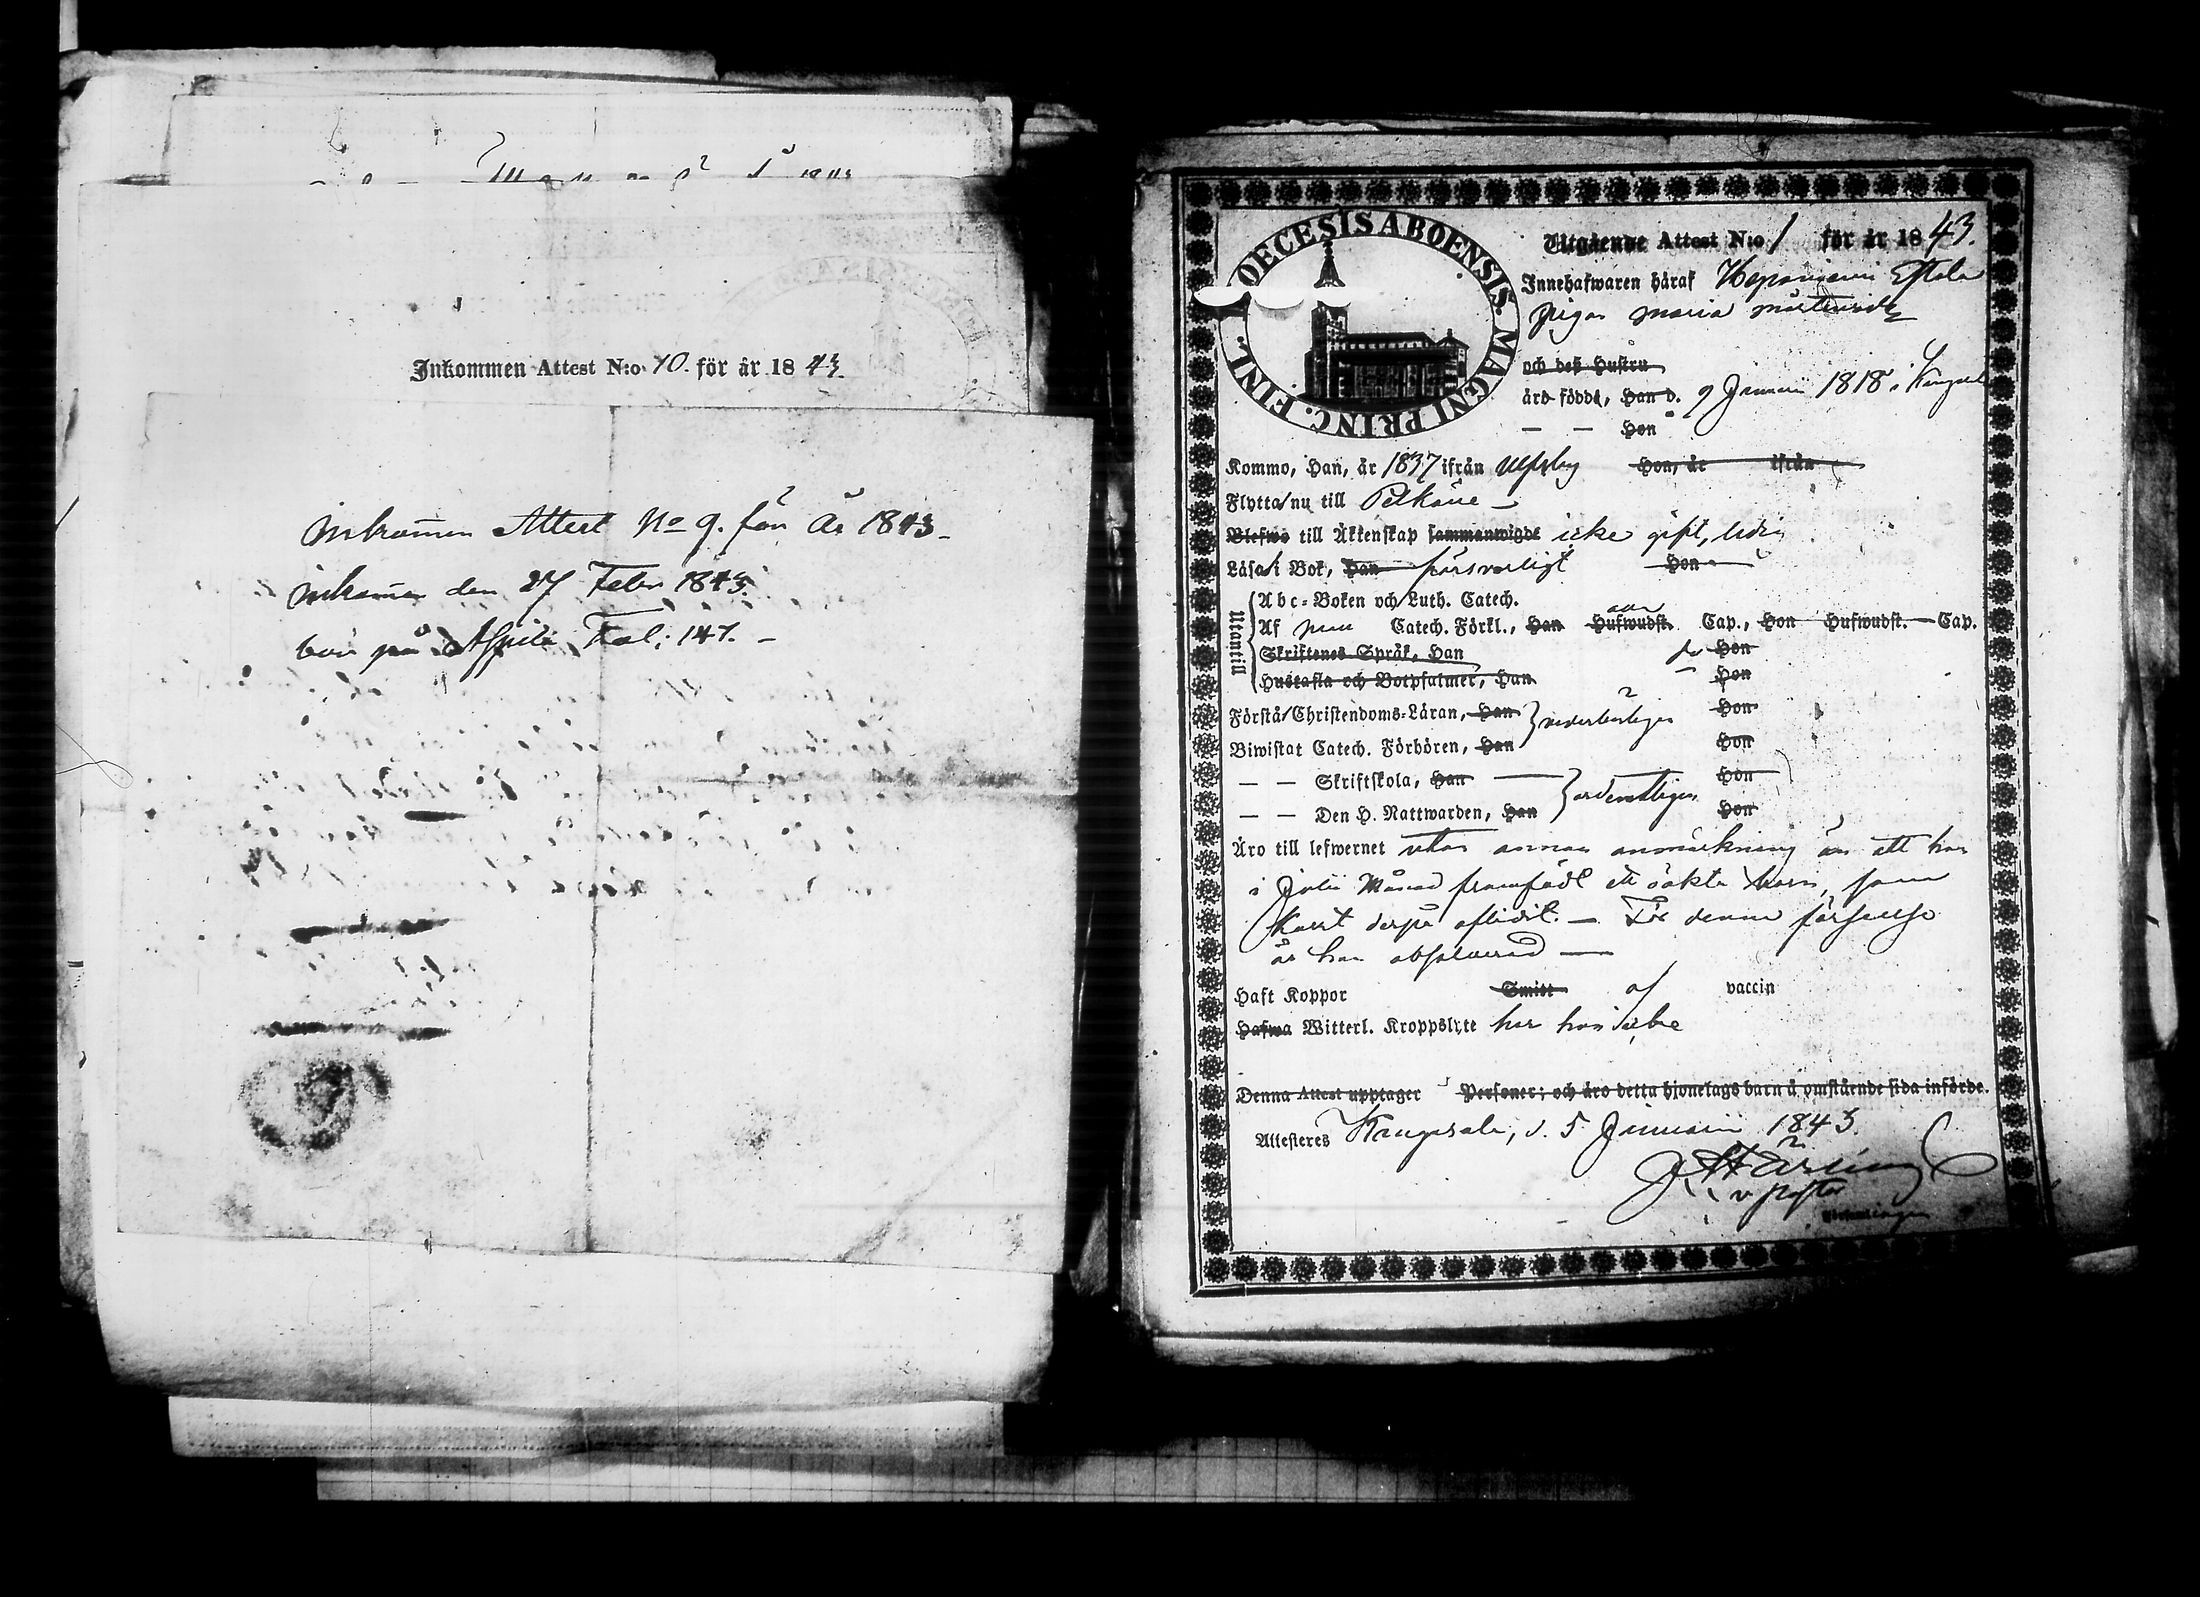 Inkommen Attest N:o 10. för år 1843.
Inkommen Attest No 9. för År 1843.
Inkommen den 27 Febr 1843.
bor på Fol: 147. -
DIOECESIS ABOENSIS. MAGNI PRINC. FINL.
Utgående Attest N:o 1 för år 1843.
Innehafwaren häraf Heponiemi
pigan Maria
och deß Hustru
äro födde, Han d. 9 Januari 1818 i
— — Hon
Kommo, Han, år 1837 ifrån Ulfsby Hon, år ifrån
Flytta/nu till Pelkäne —
Blefwo till Äktenskap sammanwigde icke gift, ledig
Läsa i Bok, Han försvarligt Hon
Utantill
Abc-Boken och Luth. Catech.
Af Catech. Förkl., Han Hufwudst. Cap., Hon Hufwudst. — Cap.
Skriftenes Språk, Han Hon
Hustafla och Botpsalmer, Han Hon
Förstå/Christendoms-Läran, Han Hon
Biwistat Catech. Förhören, Han Hon
— — Skriftskola, Han ordentligen Hon
— — Den H. Nattwarden, Han Hon
Äro till lefwernet utan annan anmärkning än att hon
i Julii Månad framfödt ett oäkta barn, som
kort derpå aflidit. — För denna förseelse
är hon absolverad —
Haft Koppor Smitt af vaccin
Hafwa Witterl. Kroppslyte har hon icke
Denna Attest upptager Personer; och äro detta hjonelags barn å omstående sida införde.
Attesteres Kangasala, d. 5 Januarii 1843.
v. Pastor